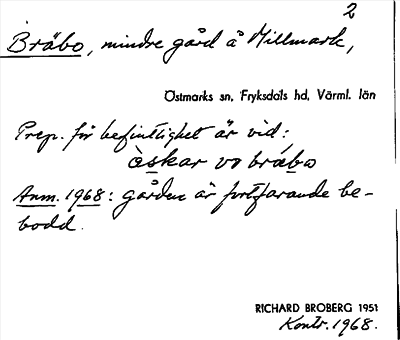 2
Bräbo, mindre gård å Millmark,
Östmarks sn, Fryksdals hd, Värml. län
Prep. för befintlighet är vid:
òskar vo bräbo
Anm. 1968: gården är fortfarande be-
bodd.
RICHARD BROBERG 1951
Kontr. 1968.